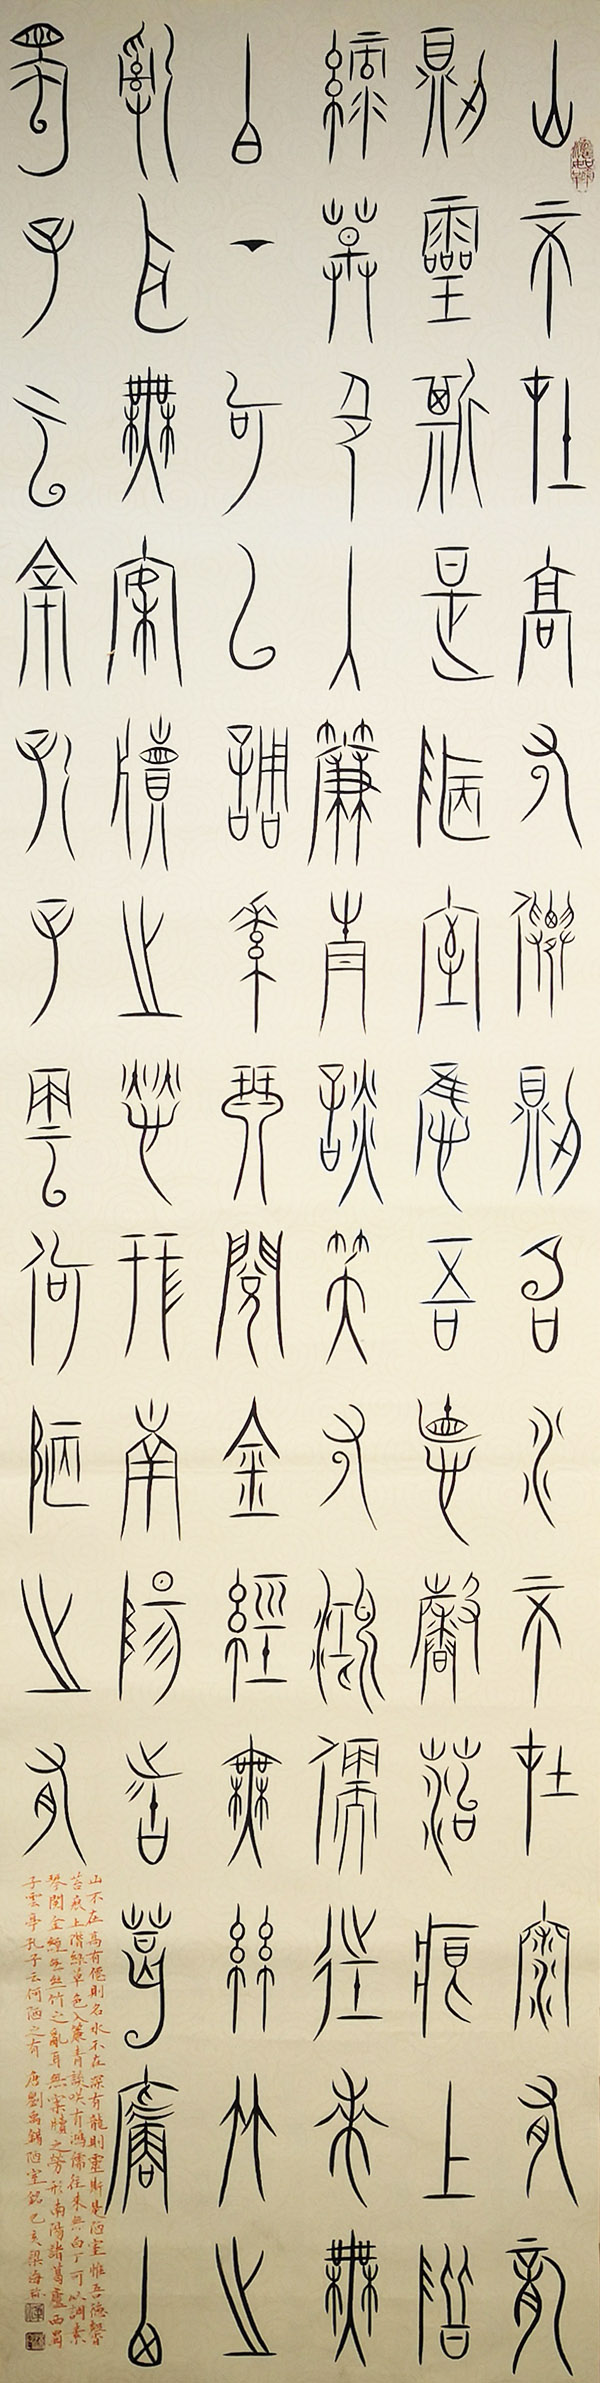 山不在高有僊則名水不在深有龍
則靈斯是陋室惟吾悳馨苔痕上階
綠草色入簾青談笑有鴻儒往來無
白丁可以調素琴閱金經無絲竹之
亂耳無案牘之勞形南陽諸葛廬西
蜀子云亭孔子雲何陋之有
山不在高有僊則名水不在深有龍則靈斯是陋室惟吾德馨
苔痕上階綠草色入簾青談笑有鴻儒往來無白丁可以調素
琴閱金經無絲竹之亂耳無案牘之勞形南陽諸葛廬西蜀
子雲亭孔子云何陋之有 唐劉禹錫陋室銘 己亥梁海